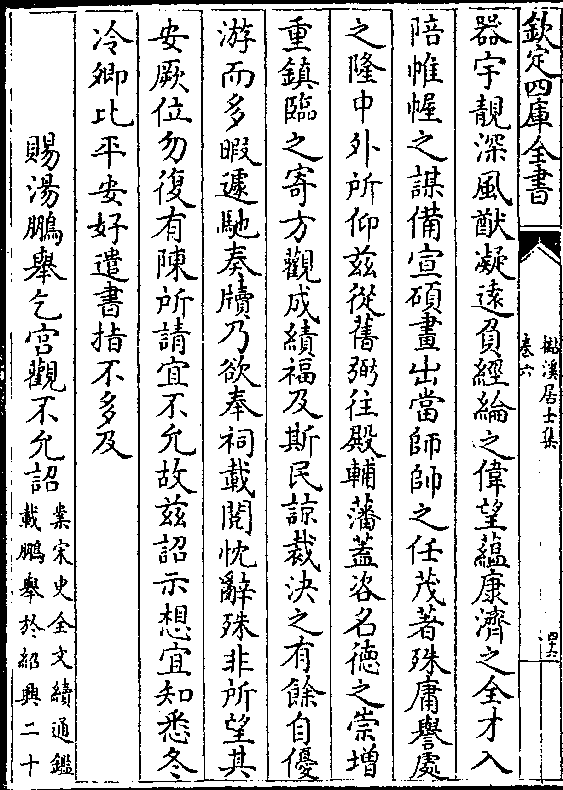 欽定四庫全書
檆溪居士集
卷六
四十六
器宇靚深風猷凝遠負經綸之偉望藴康濟之全才入
陪帷幄之謀備宣碩畫出當師帥之任茂著殊庸譽處
之隆中外所仰兹從舊弼往殿輔藩蓋咨名徳之崇増
重鎮臨之寄方觀成績福及斯民諒裁決之有餘自優
游而多暇遽馳奏牘乃欲奉祠載閲忱辭殊非所望其
安厥位勿復有陳所請宜不允故兹詔示想宜知悉冬
冷卿比平安好遣書指不多及
賜湯鵬舉乞宮觀不允詔
案宋史全文續通鑑
載鵬舉於紹興二十